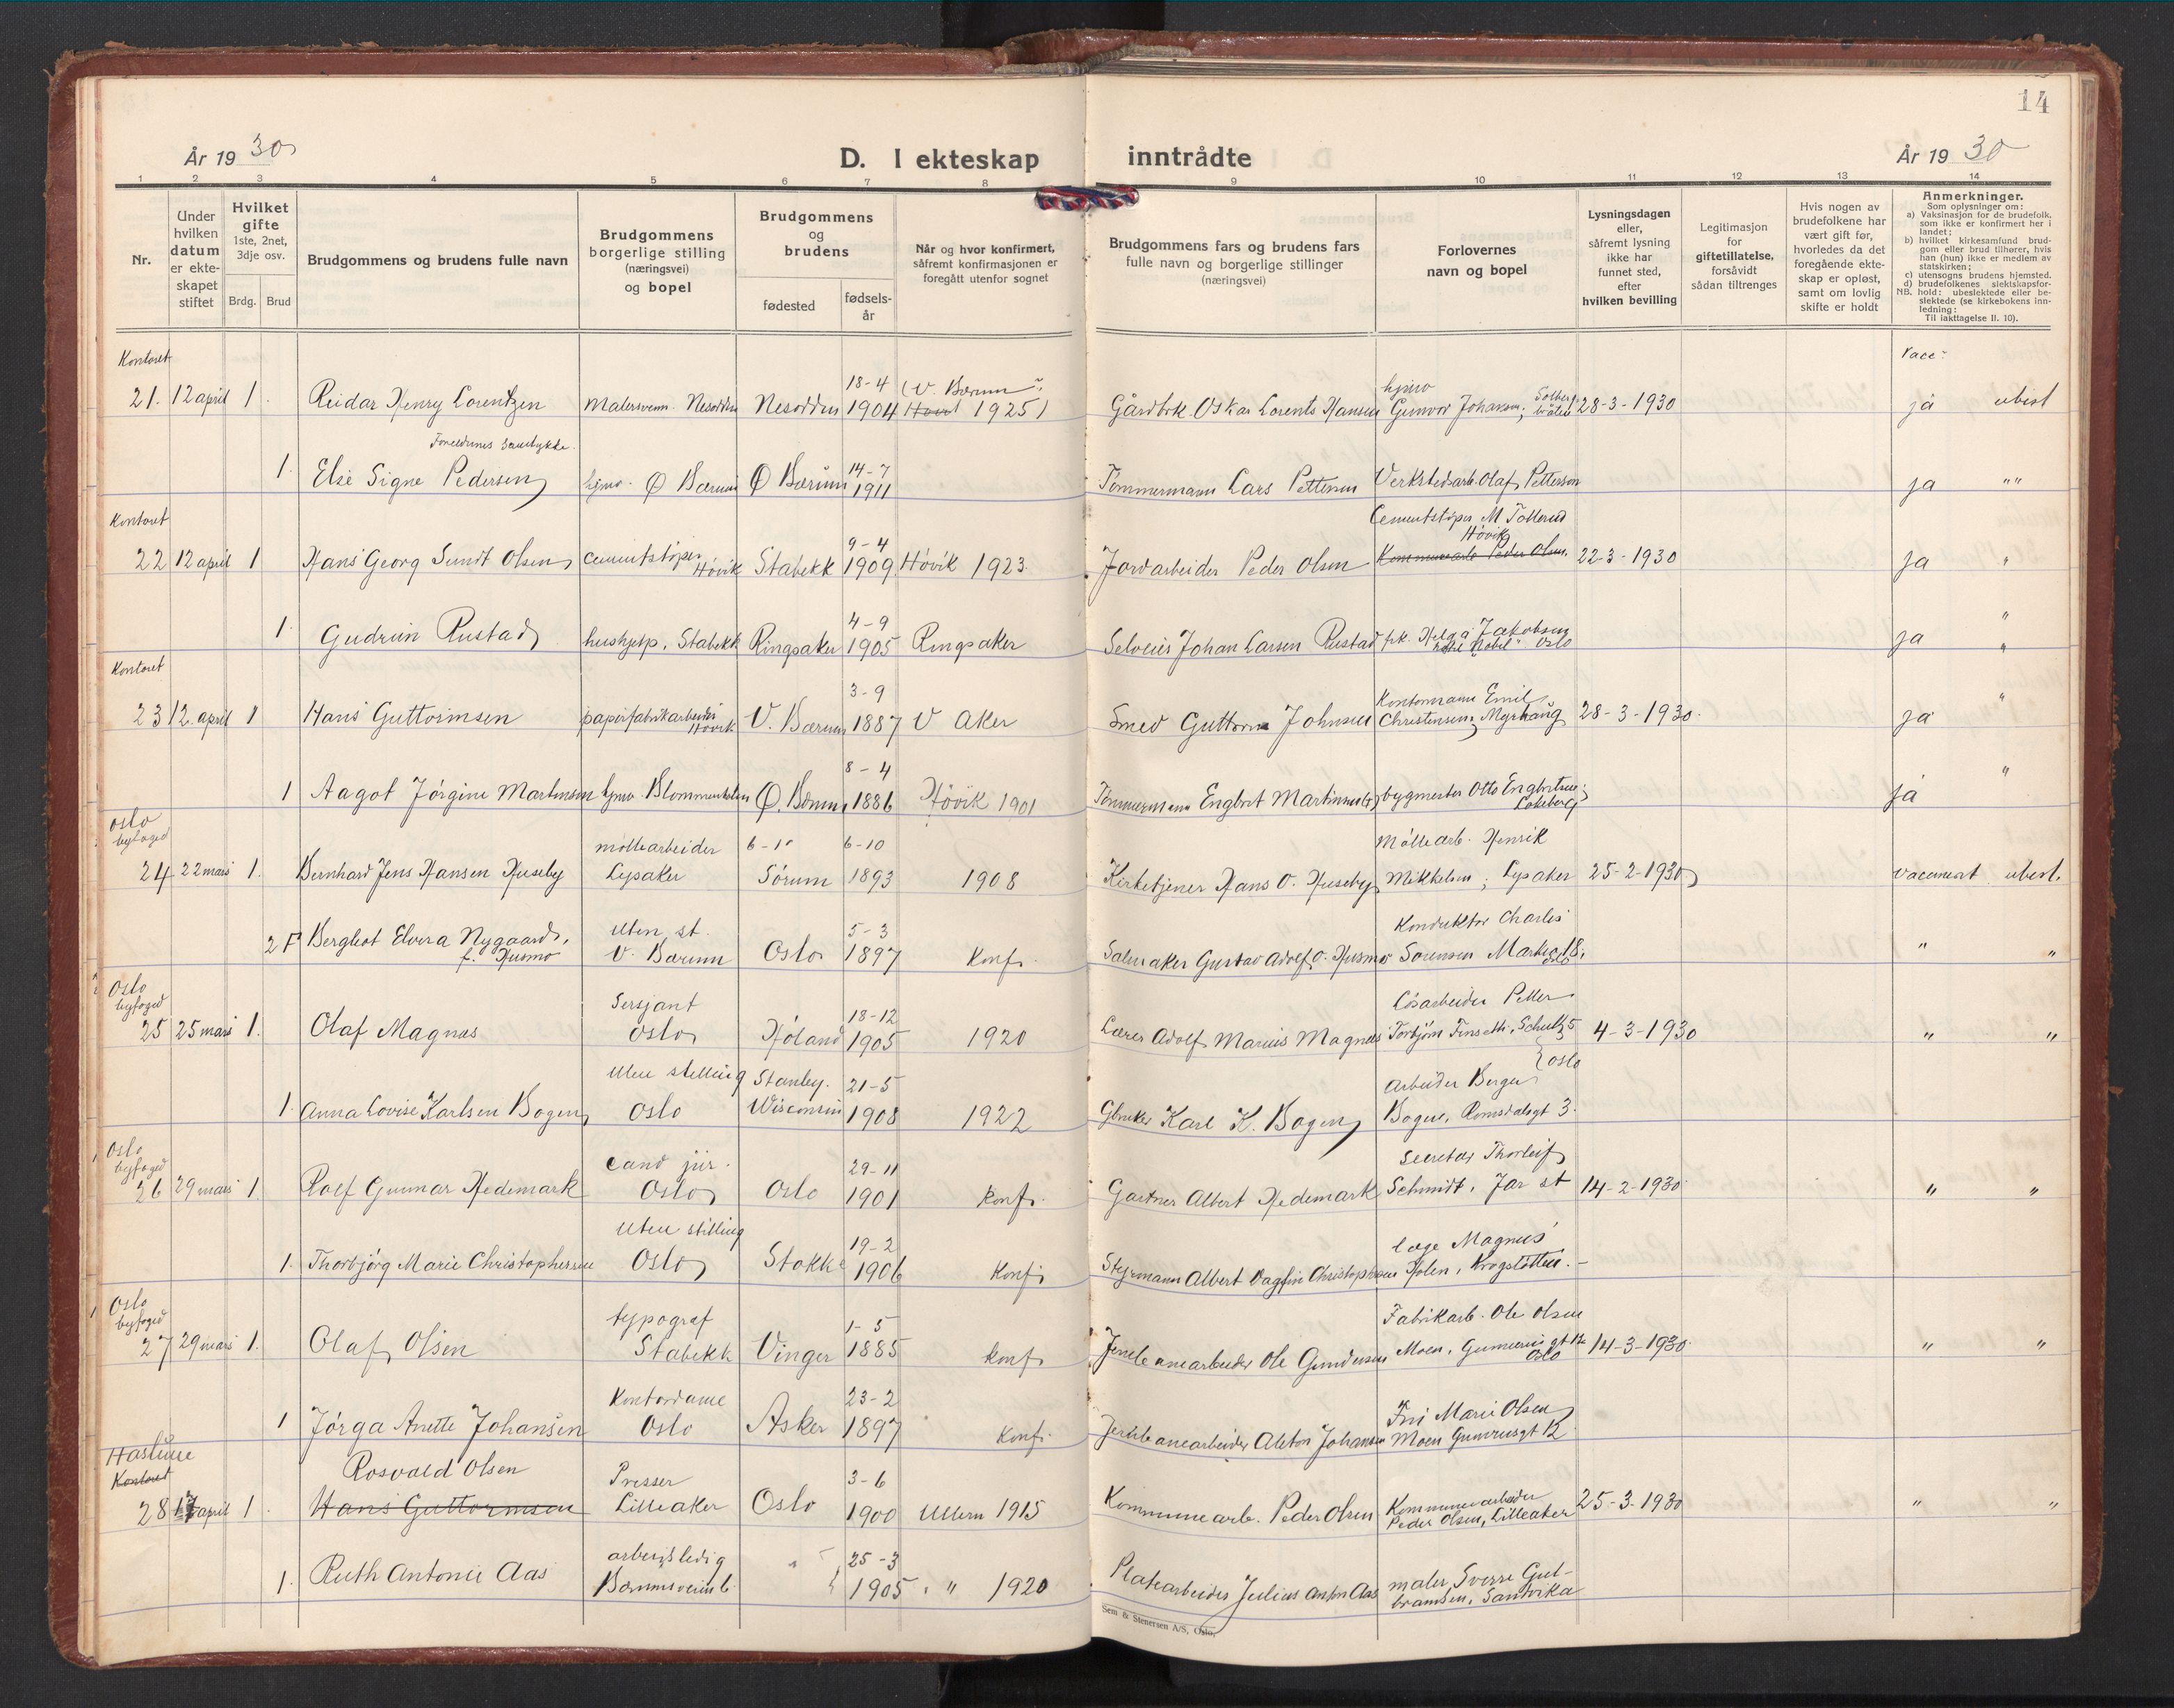 14
År 1930
D. I ekteskap inntrådte
År 1930
1 2 3 4 5 6 7 8 9 10 11 12 13 14
Nr.
Under hvilken datum er ekteskapet stiftet
Hvilket gifte 1ste, 2net, 3dje osv.
Brdg. Brud
Brudgommens og brudens fulle navn
Brudgommens borgerlige stilling (næringsvei) og bopel
Brudgommens og brudens
fødested
fødselsår
Når og hvor konfirmert, såfremt konfirmasjonen er foregått utenfor sognet
Brudgommens fars og brudens fars fulle navn og borgerlige stillinger (næringsvei)
Forlovernes navn og bopel
Lysningsdagen eller, såfremt lysning ikke har funnet sted, efter hvilken bevilling
Legitimasjon for giftetillatelse, forsåvidt sådan tiltrenges
Hvis nogen av brudefolkene har vært gift før, hvorledes da det foregående ekteskap er opløst, samt om lovlig skifte er holdt
Anmerkninger.
Som oplysninger om:
a) Vaksinasjon for de brudefolk, som ikke er konfirmert her i landet;
b) hvilket kirkesamfund brudgom eller brud tilhører, hvis han (hun) ikke er medlem av statskirken;
c) utensogns brudens hjemsted.
d) brudefolkenes slektskapsforhold: ubeslektede eller beslektede (se kirkebokens innledning:
NB.
Til iakttagelse II. 10).
Kontoret
Vacc:
21. 12 april 1. Reidar Henry Lorentzen Malersvenn. Nesodden Nesodden 18-4 1904 (V. Bærum 1925) Gårdbrk. Oskar Lorents Hansen hjmv Gunvor Johansen; 28-3-1930 ja ubesl
Foreldrenes samtykke.
1. Else Signe Pedersen hjmv. Ø Bærum Ø Bærum 14-7 1911 Tømmermann Lars Pettersen Verkstedsarb. Olaf Petterson ja " "
Kontoret
22 12 april 1 Hans Georg Sundt Olsen cementstøper Høvik Stabekk 9-4 1909 Høvik 1923. Jordarbeider Peder Olsen Cementstøper M Tollerud Høvik Kommunearb Peder Olsen. 22-3-1930 Ja "
1. Gudrun Rustad hushjelp. Stabekk Ringsaker 4-9 1905 Ringsaker Selveier Johan Larsen Rustad frk. Helga Jakobsen hotel "Nobel" Oslo ja "
Kontoret
23 12. april 1 Hans Guttormsen papirfabrikarbeider Høvik V. Bærum 3-9 1887 V Aker Smed Guttorm Johnsen Kontormann Emil Christensen, Myrhaug 28-3-1930. ja "
1 Aagot Jørgine Martinsen hjmv. Blommenholm Ø. Bærum 8-4 1886 Høvik 1901 Tømmermann Engbret Martinsen bygmester Otto Engbretsen; Løkeberg ja "
Oslo byfoged
24 22 mars 1. Bernhard Jens Hansen Huseby møllearbeider Lysaker Sørum 6-10 1893 1908 Kirketjener Hans O. Huseby Møllearb. Henrik Mikkelsen; Lysaker 25-2-1930 vaccinert ubesl.
2 F Bergliot Elvira Nygaard, f. Husmo Uten st. V. Bærum Oslo 5-3 1897 Konf. Salmaker Gustav Adolf O. Husmo Konduktør Charles Sørensen " "
Oslo byfoged
25 25 mars 1. Olaf Magnus Sersjant Oslo Høland 18-12 1905 1920 Lærer Adolf Marius Magnus Løsarbeider Petter Torbjørn 4-3-1930 " "
1. Anna Lovise Karlsen Bogen Uten stelling Oslo Stanley. Wisconsin 21-5 1908 1922 Gbruker Karl K. Bogen Arbeider Berger Bogen, Romsdalsgt 3. } Oslo
Oslo byfoged
26 29 mars 1. Rolf Gunnar Hedemark cand jur. Oslo Oslo 29-11 1901 Konf. Gartner Albert Hedemark Secretær Thorleif Schmidt, Jar st 14-2-1930. " "
1. Thorbjørg Marie Christophersen Uten stilling Oslo Stokke 19-2 1906 Konf. Styrmann Albert Dagfin Christophersen læge Magnus Holen, Krogstøtten. -
Oslo byfoged
27 29 mars 1. Olaf Olsen typograf Stabekk Vinger 1-5 1885 Konf. Jernbanearbeider Ole Gundersen Fabrikarb. Ole Olsen Moen, Gunerius gt 12 Oslo 14-3-1930. " "
1 Jørga Anette Johansen Kontordame Oslo Asker 23-2 1897 Konf. Jernbanearbeider Aleton Johansen Fru Marie Olsen Moen Gunriusgt 12
Haslum
Kontoret
28 17 april 1. Rosvald Olsen Hans Guttormsen Presser Lilleaker Oslo 3-6 1900 Ullern 1915 Kommunearb. Peder Olsen Kommunearbeider Peder Olsen, Lilleaker 25-3-1930 " "
1. Ruth Antonie Aas arbeidsledig Bærumsveien 6. " 25-3 1905 " 1920 Platearbeider Julius Anton Aas maler Sverre Gulbrandsen, Sandvika
Sem & Stenersen A/S, Oslo.